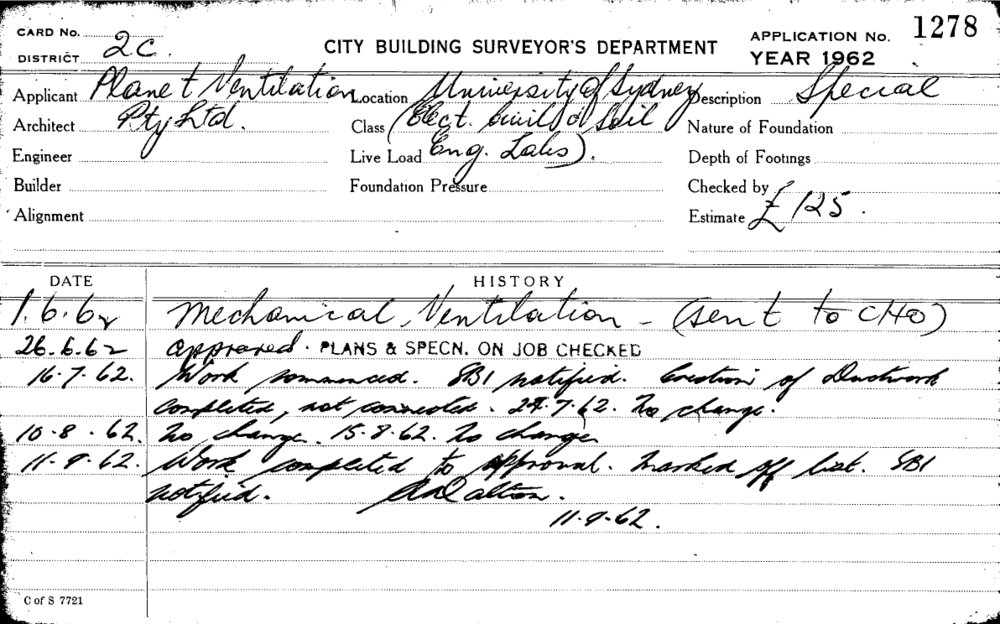 CARD No.
DISTRICT 2C.
CITY BUILDING SURVEYOR'S DEPARTMENT
APPLICATION No. 1278
YEAR 1962
Applicant Planet Ventilation Location University of Sydney Description Special
Architect Pty Ltd. Class (Elect. Civil & Soil Nature of Foundation
Engineer Live Load Eng. Labs). Depth of Footings
Builder Foundation Pressure Checked by
Alignment Estimate £125.
DATE HISTORY
1.6.62 Mechanical Ventilation - (sent to CHO)
26.6.62 approved. PLANS & SPECN. ON JOB CHECKED
16.7.62. Work commenced. SBI notified. Erection of Ductwork
completed, not connected. 24.7.62. No change.
10.8.62. No change. 15.8.62. No change
11.9.62. Work completed to approval. Marked off list. SBI
notified. Dalton.
11.9.62.
C of S 7721